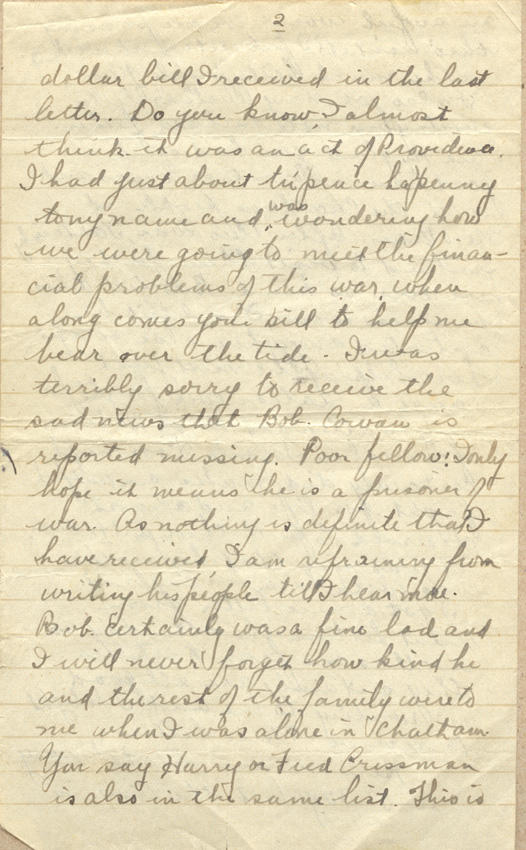 2
dollar bill I received in the last
letter. Do you know, I almost
think it was an act of Providence.
I had just about tri'pence ha'penny
to my name and was wondering how
we were going to meet the finan-
cial problems of this war, when
along comes your bill to help me
bear over the tide. I was
terribly sorry to receive the
sad news that Bob. Cowan is
reported missing. Poor fellow! I only
hope it means he is a prisoner of
war. As nothing is definite that I
have received I am refraining from
writing his people till I hear more.
Bob. certainly was a fine lad and
I will never forget how kind he
and the rest of the family were to
me when I was alone in Chatham
You say Harry or Fred Crissman
is also in the same list. This is